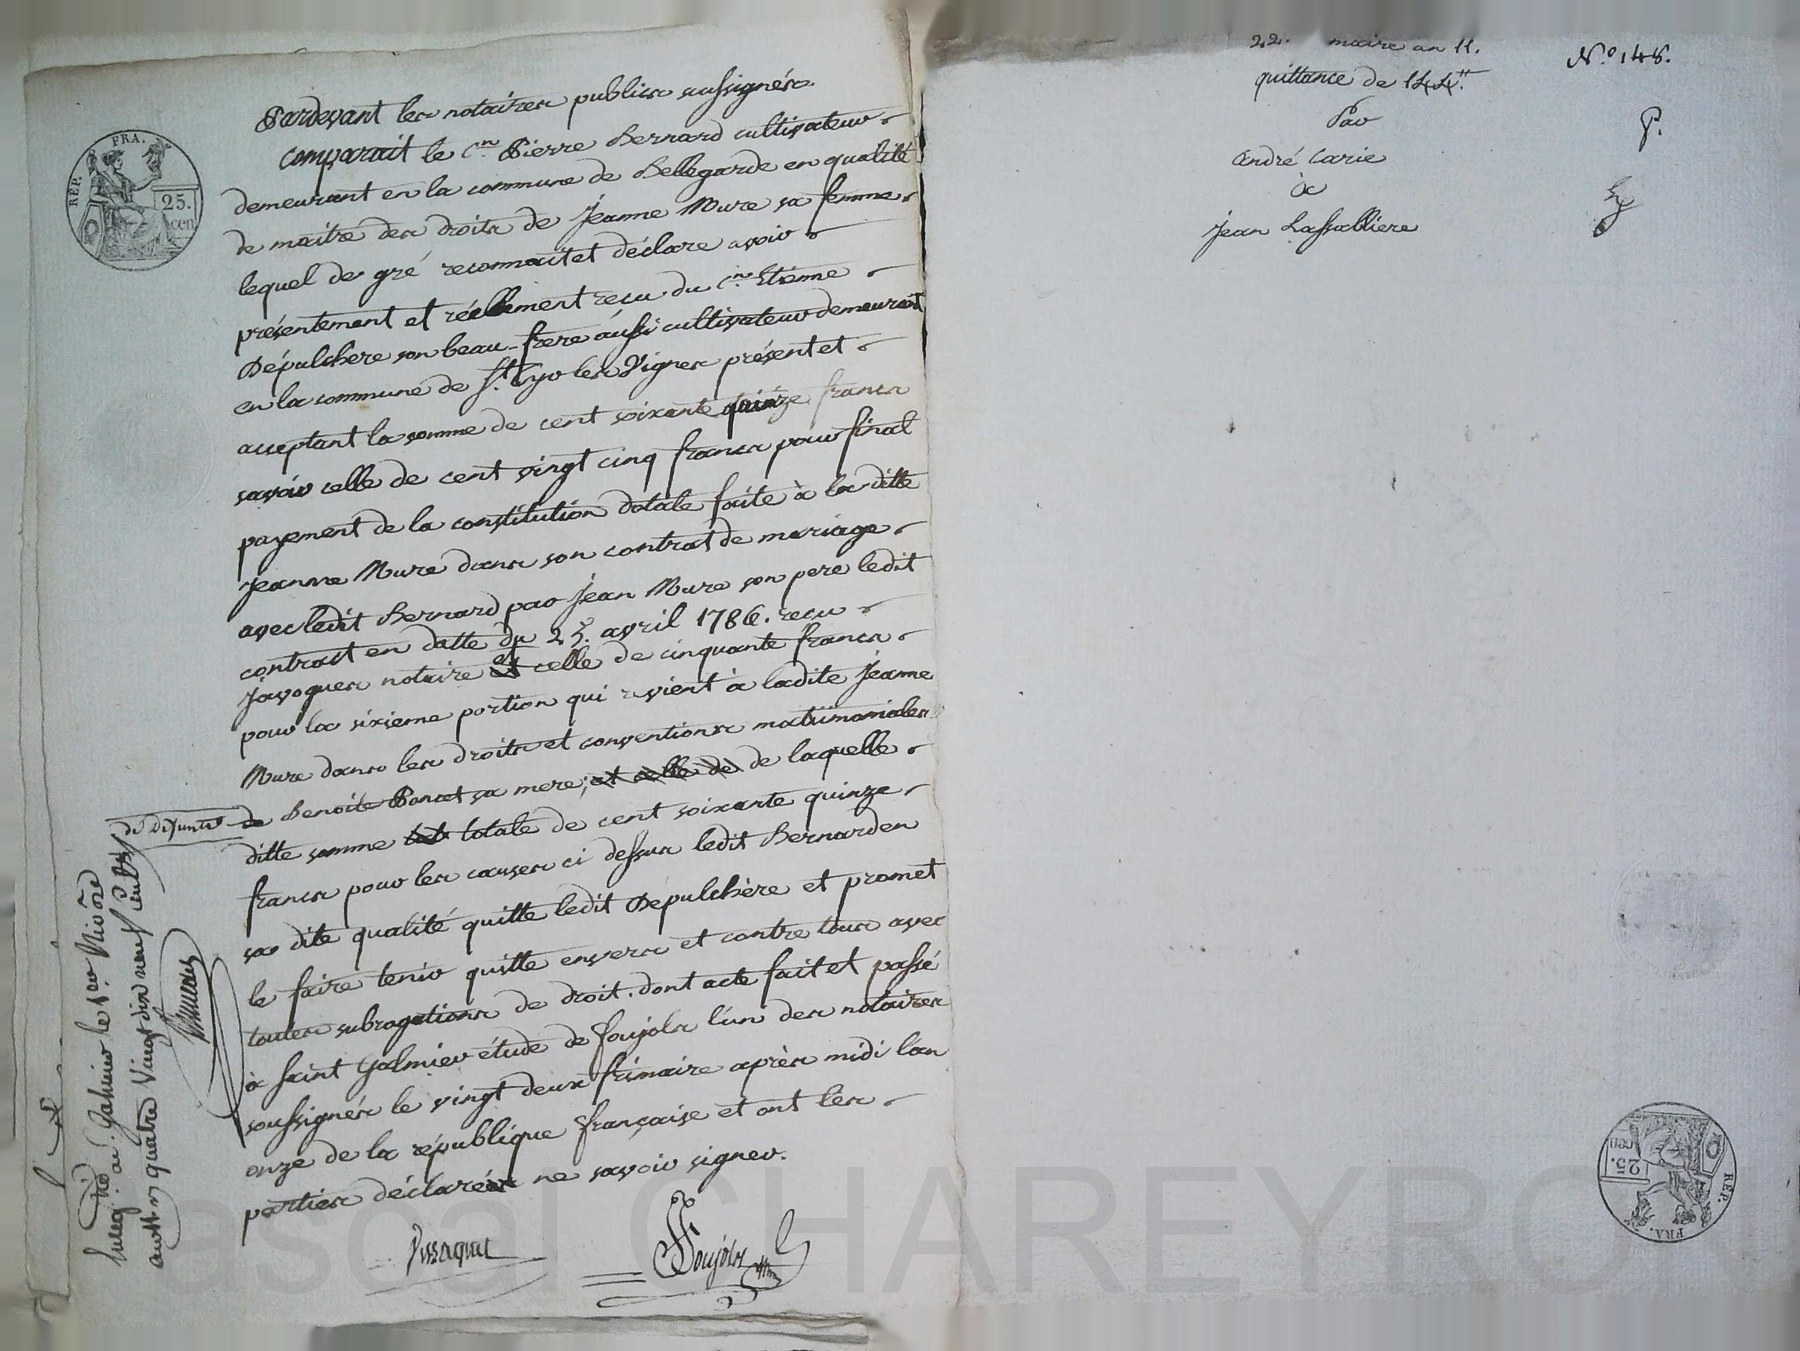 Pardevant les notaires publics sussignés
comparait le c.en Pierre Bernard cultivateur
demeurant en la commune de Bellegarde en qualité
de maitre des droits de Jeanne Mure sa femme
lequel de gré reconnait et déclare avoir
présentement et réellement reçu du c.en Etienne
Dépulchere son beau-frere áussi cultivateur demeurant
en la commune de S.t Cyr les Vignes présent et
acceptant la somme de cent soixante quinze francs
savoir celle de cent vingt cinq francs pour final
payement de la constitution dotale faite à la ditte
Jeanne Mure dans son contrat de mariage
avec ledit Bernard par Jean Mure son pere ledit
contrat en datte du 25. avril 1786. reçu
Javogues notaire et celle de cinquante francs
pour la sixieme portion qui revient à ladite Jeanne
Mure dans les droits et conventions matrimoniales
de défunte de Benoite Poncet sa mere; et celle de de laquelle
ditte somme totale de cent soixante quinze
francs pour les causes ci dessus ledit Bernard en
sa dite qualité quitte ledit Dépulchère et promet
le faire tenir quitte envers et contre tous avec
toutes subrogations de droit. dont acte fait et passé
à Saint Galmier étude de Soujols l'un des notaires
soussignés le vingt deux frimaire après midi l'an
onze de la république française et ont les
parties déclarés ne savoir signer.
Soujols
Enreg.tré à S.t Galmier le 1.er Nivôse
an 11 quatre Vingt dix neuf centes
REP. FRA.
25.
cen
22. maire an 11.
quittance de 144.tt
Par
André Carie
à
Jean Lassabliere
N.o 148.
P.
REP. FRA.
25.
cen
Pascal CHAREYRON